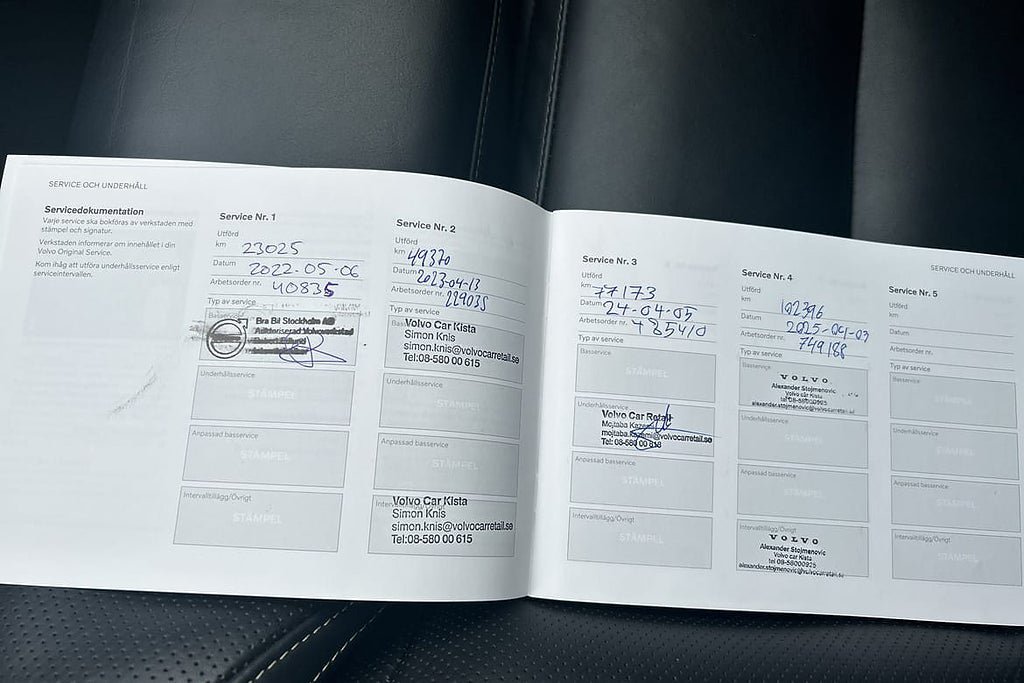 SERVICE OCH UNDERHÅLL
Servicedokumentation
Varje service ska bokföras av verkstaden med
stämpel och signatur.
Verkstaden informerar om innehållet i din
Volvo Original Service.
Kom ihåg att utföra underhållsservice enligt
serviceintervallen.
Service Nr. 1
Utförd
km 23025
Datum 2022-05-06
Arbetsorder nr. 40835
Typ av service
Basservice
Bra Bil Stockholm AB
Auktoriserad Volvoverkstad
Underhållsservice
STÄMPEL
Anpassad basservice
STÄMPEL
Intervalltillägg/Övrigt
STÄMPEL
Service Nr. 2
Utförd
km 49370
Datum 2023-04-13
Arbetsorder nr. 229035
Typ av service
Volvo Car Kista
Simon Knis
simon.knis@volvocarretail.se
Tel:08-580 00 615
Underhållsservice
STÄMPEL
Anpassad basservice
STÄMPEL
Volvo Car Kista
Simon Knis
simon.knis@volvocarretail.se
Tel:08-580 00 615
Service Nr. 3
Utförd
km 77173
Datum 24-04-05
Arbetsorder nr. 485410
Typ av service
Basservice
STÄMPEL
Underhållsservice
Volvo Car Retail
Mojtaba Kazemi
mojtaba.kazemi@volvocarretail.se
Tel: 08-580 00 618
Anpassad basservice
STÄMPEL
Intervalltillägg/Övrigt
STÄMPEL
Service Nr. 4
Utförd
km 102396
Datum 2025-04-03
Arbetsorder nr. 749188
Typ av service
Basservice
VOLVO
Alexander Stojmenovic
Volvo car Kista
tel 08-58000925
alexander.stojmenovic@volvocarretail.se
Underhållsservice
STÄMPEL
Anpassad basservice
STÄMPEL
Intervalltillägg/Övrigt
VOLVO
Alexander Stojmenovic
Volvo car Kista
tel 08-58000925
alexander.stojmenovic@volvocarretail.se
SERVICE OCH UNDERHÅLL
Service Nr. 5
Utförd
km
Datum
Arbetsorder nr.
Typ av service
Basservice
STÄMPEL
Underhållsservice
STÄMPEL
Anpassad basservice
STÄMPEL
Intervalltillägg/Övrigt
STÄMPEL